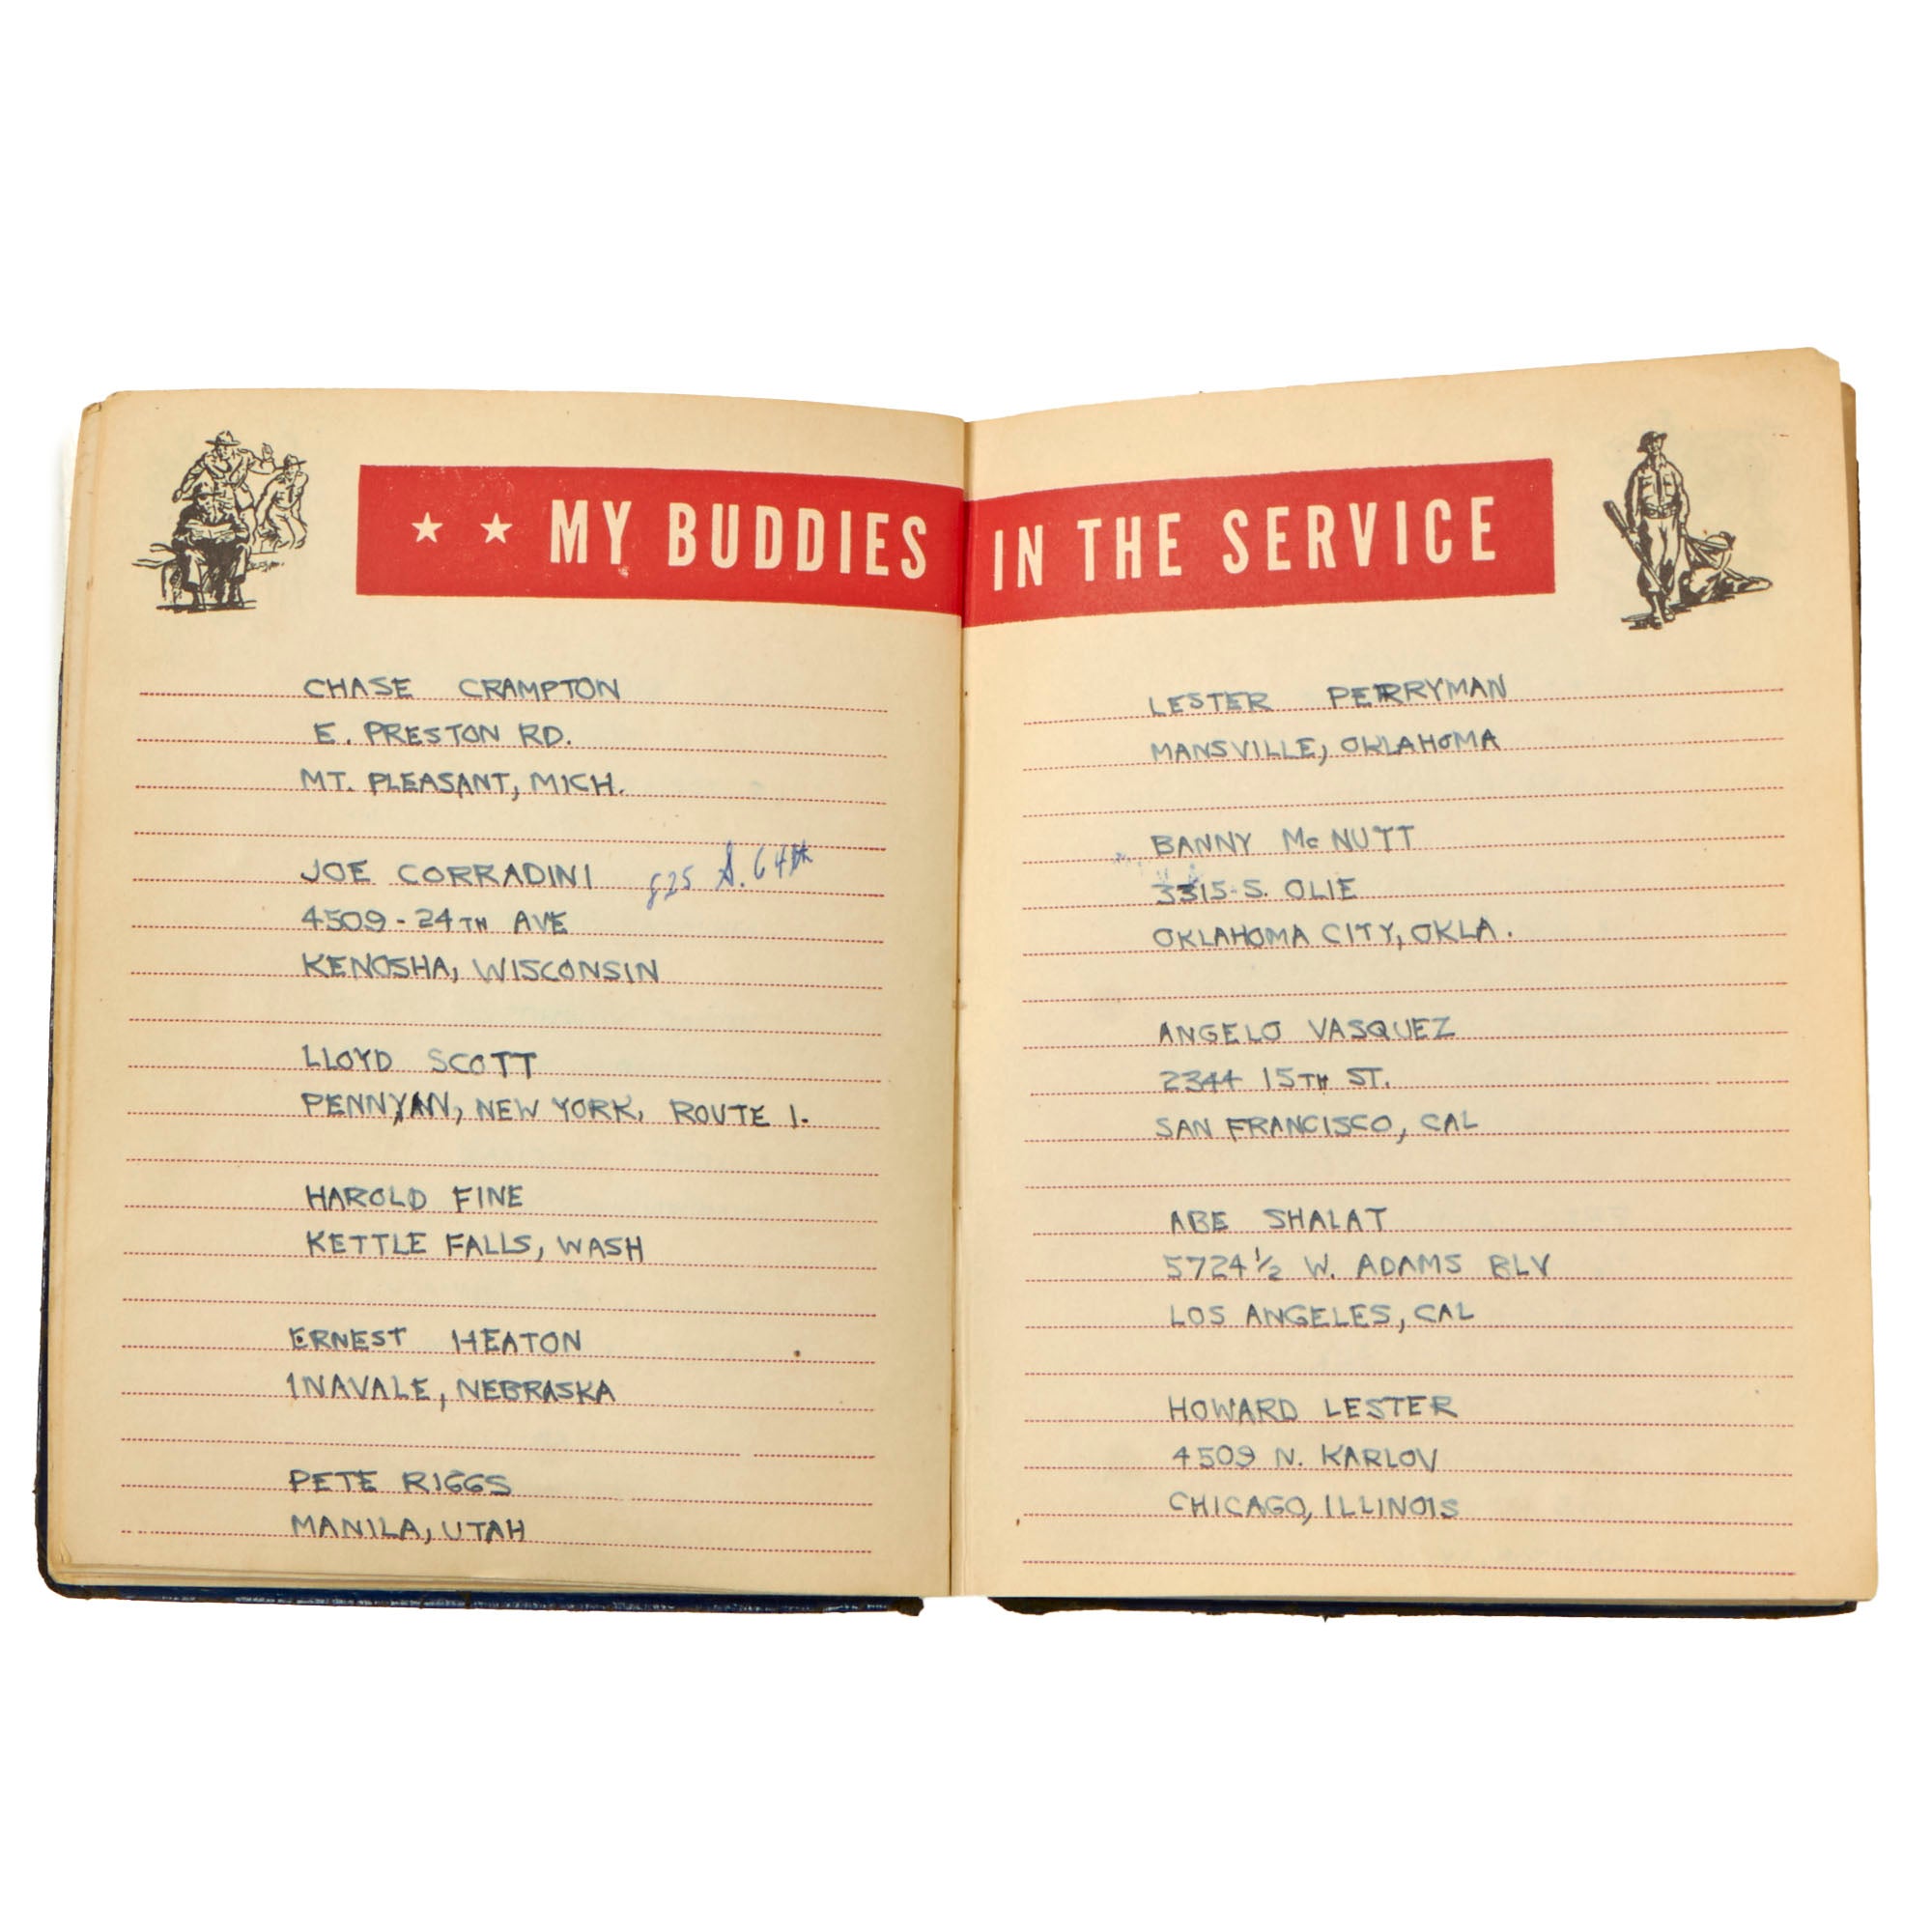 ★ ★ MY BUDDIES IN THE SERVICE
CHASE CRAMPTON
E. PRESTON RD.
MT. PLEASANT, MICH.
JOE CORRADINI 825 S. 64th
4509-24TH AVE
KENOSHA, WISCONSIN
LLOYD SCOTT
PENNYAN, NEW YORK, ROUTE 1.
HAROLD FINE
KETTLE FALLS, WASH
ERNEST HEATON
INAVALE, NEBRASKA
PETE RIGGS
MANILA, UTAH
LESTER PERRYMAN
MANSVILLE, OKLAHOMA
BANNY McNUTT
3315-S. OLIE
OKLAHOMA CITY, OKLA.
ANGELO VASQUEZ
2344 15TH ST.
SAN FRANCISCO, CAL
ABE SHALAT
5724 1/2 W. ADAMS BLV
LOS ANGELES, CAL
HOWARD LESTER
4509 N. KARLOV
CHICAGO, ILLINOIS